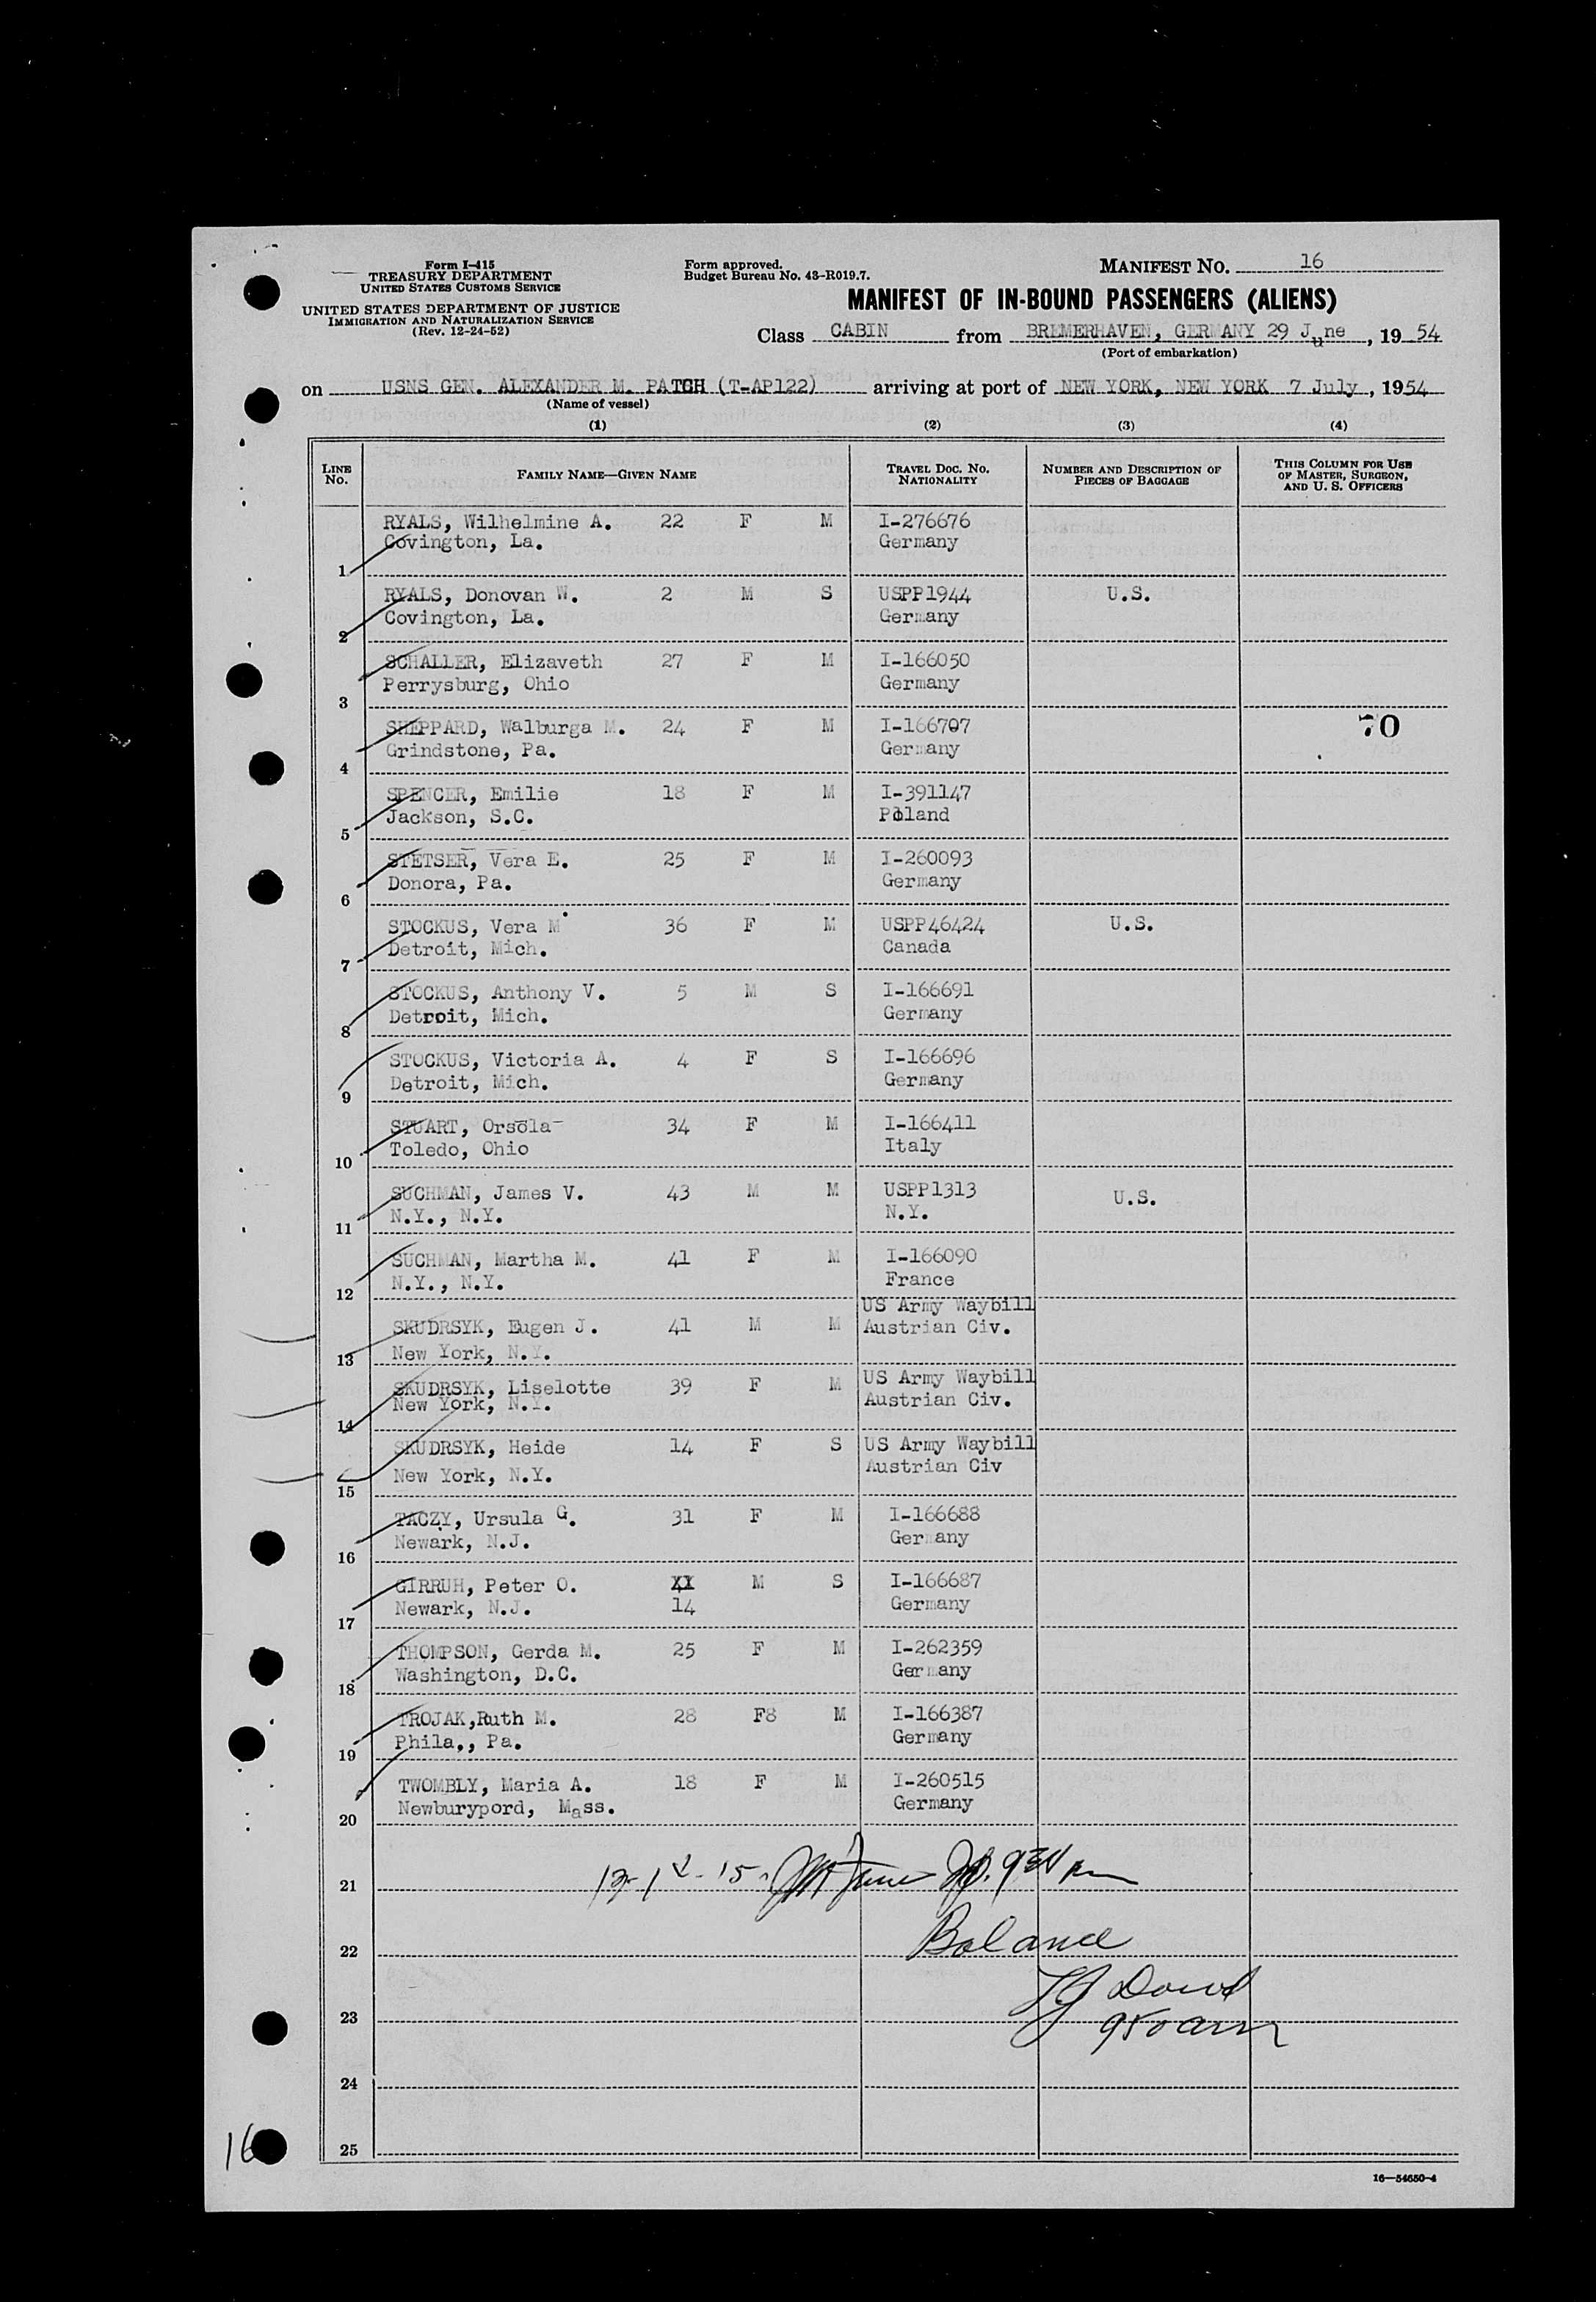 Form I-415
TREASURY DEPARTMENT
UNITED STATES CUSTOMS SERVICE
UNITED STATES DEPARTMENT OF JUSTICE
IMMIGRATION AND NATURALIZATION SERVICE
(Rev. 12-24-52)
Form approved.
Budget Bureau No. 43-R019.7.
MANIFEST NO. 16
MANIFEST OF IN-BOUND PASSENGERS (ALIENS)
Class CABIN from BREMERHAVEN, GERMANY 29 June, 19 54
(Port of embarkation)
on USNS GEN. ALEXANDER M. PATCH (T-AP122) arriving at port of NEW YORK, NEW YORK 7 July, 1954
(Name of vessel)
(1) (2) (3) (4)
LINE NO. FAMILY NAME—GIVEN NAME TRAVEL DOC. NO. NATIONALITY NUMBER AND DESCRIPTION OF PIECES OF BAGGAGE THIS COLUMN FOR USE OF MASTER, SURGEON, AND U. S. OFFICERS
RYALS, Wilhelmine A. 22 F M I-276676
Covington, La. Germany
1
RYALS, Donovan W. 2 M S USPP1944 U.S.
Covington, La. Germany
2
SCHALLER, Elizaveth 27 F M I-166050
Perrysburg, Ohio Germany
3
SHEPPARD, Walburga M. 24 F M I-166707 70
Grindstone, Pa. Germany
4
SPENCER, Emilie 18 F M I-391147
Jackson, S.C. Poland
5
STETSER, Vera E. 25 F M I-260093
Donora, Pa. Germany
6
STOCKUS, Vera M. 36 F M USPP46424 U.S.
Detroit, Mich. Canada
7
STOCKUS, Anthony V. 5 M S I-166691
Detroit, Mich. Germany
8
STOCKUS, Victoria A. 4 F S I-166696
Detroit, Mich. Germany
9
STUART, Orsola 34 F M I-166411
Toledo, Ohio Italy
10
SUCHMAN, James V. 43 M M USPP1313 U.S.
N.Y., N.Y. N.Y.
11
SUCHMAN, Martha M. 41 F M I-166090
N.Y., N.Y. France
12
US Army Waybill
SKUDRSYK, Eugen J. 41 M M Austrian Civ.
New York, N.Y.
13
SKUDRSYK, Liselotte 39 F M US Army Waybill
New York, N.Y. Austrian Civ.
14
SKUDRSYK, Heide 14 F S US Army Waybill
New York, N.Y. Austrian Civ
15
TACZY, Ursula G. 31 F M I-166688
Newark, N.J. Germany
16
GIRRUH, Peter O. M S I-166687
Newark, N.J. 14 Germany
17
THOMPSON, Gerda M. 25 F M I-262359
Washington, D.C. Germany
18
TROJAK,Ruth M. 28 F8 M I-166387
Phila,, Pa. Germany
19
TWOMBLY, Maria A. 18 F M I-260515
Newburypord, Mass. Germany
20
21
Balance
22
Dowd
23 950 am
24
16
25
16—54650-4